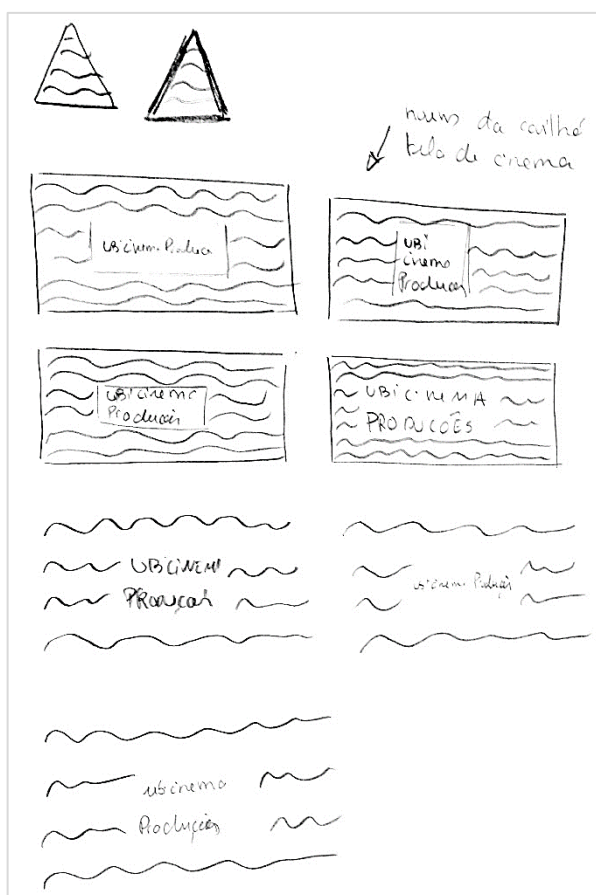 tela de cinema
UBi Cinema Produções
UBi
Cinema
Produções
UBi Cinema
Produções
UBICINEMA
PRODUCÕES
UBiCiNEMA
PRoduçoes
ubi Cinema Produções
ubicinema
Produções